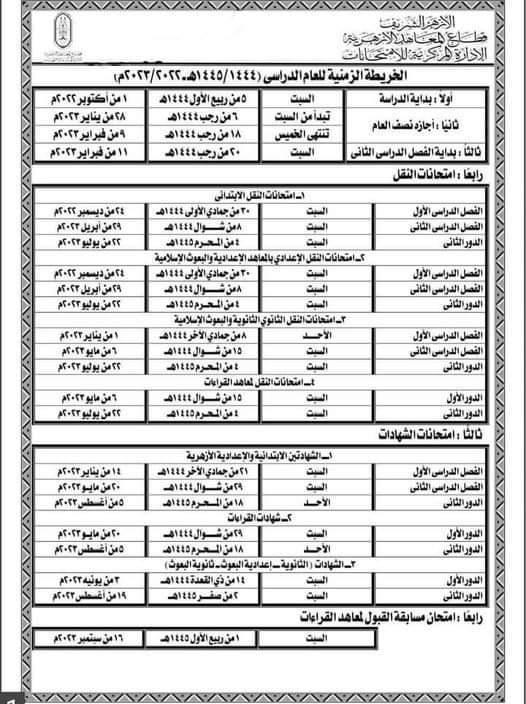 الأزهر الشريف
قطاع المعاهد الأزهرية
الإدارة المركزية للامتحانات
الخريطة الزمنية للعام الدراسى (١٤٤٥/١٤٤٤هـ-٢٠٢٣/٢٠٢٢م)
أولاً : بداية الدراسة السبت ٥ من ربيع الأول ١٤٤٤هـ ١ من أكتوبر ٢٠٢٢م
ثانيًا : أجازه نصف العام تبدأ من السبت ٦ من رجب ١٤٤٤هـ ٢٨ من يناير ٢٠٢٣م
تنتهى الخميس ١٨ من رجب ١٤٤٤هـ ٩ من فبراير ٢٠٢٣م
ثالثًا : بداية الفصل الدراسى الثانى السبت ٢٠ من رجب ١٤٤٤هـ ١١ من فبراير ٢٠٢٣م
رابعًا : امتحانات النقل
١- امتحانات النقل الابتدائى
الفصل الدراسى الأول السبت ٣٠ من جمادى الأولى ١٤٤٤هـ ٢٤ من ديسمبر ٢٠٢٢م
الفصل الدراسى الثانى السبت ٨ من شوال ١٤٤٤هـ ٢٩ من أبريل ٢٠٢٣م
الدور الثانى السبت ٤ من المحرم ١٤٤٥هـ ٢٢ من يوليو ٢٠٢٣م
٢- امتحانات النقل الإعدادي بالمعاهد الإعدادية والبعوث الإسلامية
الفصل الدراسى الأول السبت ٣٠ من جمادي الأولى ١٤٤٤هـ ٢٤ من ديسمبر ٢٠٢٢م
الفصل الدراسى الثانى السبت ٨ من شوال ١٤٤٤هـ ٢٩ من أبريل ٢٠٢٣م
الدور الثانى السبت ٤ من المحرم ١٤٤٥هـ ٢٢ من يوليو ٢٠٢٣م
٣- امتحانات النقل الثانوي الثانوية والبعوث الإسلامية
الفصل الدراسى الأول الأحد ٨ من جمادي الآخر ١٤٤٤هـ ١ من يناير ٢٠٢٣م
الفصل الدراسى الثانى السبت ١٥ من شوال ١٤٤٤هـ ٦ من مايو ٢٠٢٣م
الدور الثانى السبت ٤ من المحرم ١٤٤٥هـ ٢٢ من يوليو ٢٠٢٣م
٤- امتحانات النقل لمعاهد القراءات
الدور الأول السبت ١٥ من شوال ١٤٤٤هـ ٦ من مايو ٢٠٢٣م
الدور الثانى السبت ٤ من المحرم ١٤٤٥هـ ٢٢ من يوليو ٢٠٢٣م
ثالثًا : امتحانات الشهادات
١- الشهادتين الابتدائية والإعدادية الأزهرية
الفصل الدراسى الأول السبت ٢١ من جمادي الآخر ١٤٤٤هـ ١٤ من يناير ٢٠٢٣م
الفصل الدراسى الثانى السبت ٢٩ من شوال ١٤٤٤هـ ٢٠ من مايو ٢٠٢٣م
الدور الثانى الأحد ١٨ من المحرم ١٤٤٥هـ ٥ من أغسطس ٢٠٢٣م
٢- شهادات القراءات
الدور الأول السبت ٢٩ من شوال ١٤٤٤هـ ٢٠ من مايو ٢٠٢٣م
الدور الثانى الأحد ١٨ من المحرم ١٤٤٥هـ ٥ من أغسطس ٢٠٢٣م
٣- الشهادات (الثانوية - إعدادية البعوث - ثانوية البعوث)
الدور الأول السبت ١٤ من ذي القعدة ١٤٤٤هـ ٣ من يونيه ٢٠٢٣م
الدور الثانى السبت ٢ من صفر ١٤٤٥هـ ١٩ من أغسطس ٢٠٢٣م
رابعًا : امتحان مسابقة القبول لمعاهد القراءات
السبت ١ من ربيع الأول ١٤٤٥هـ ١٦ من سبتمبر ٢٠٢٣م